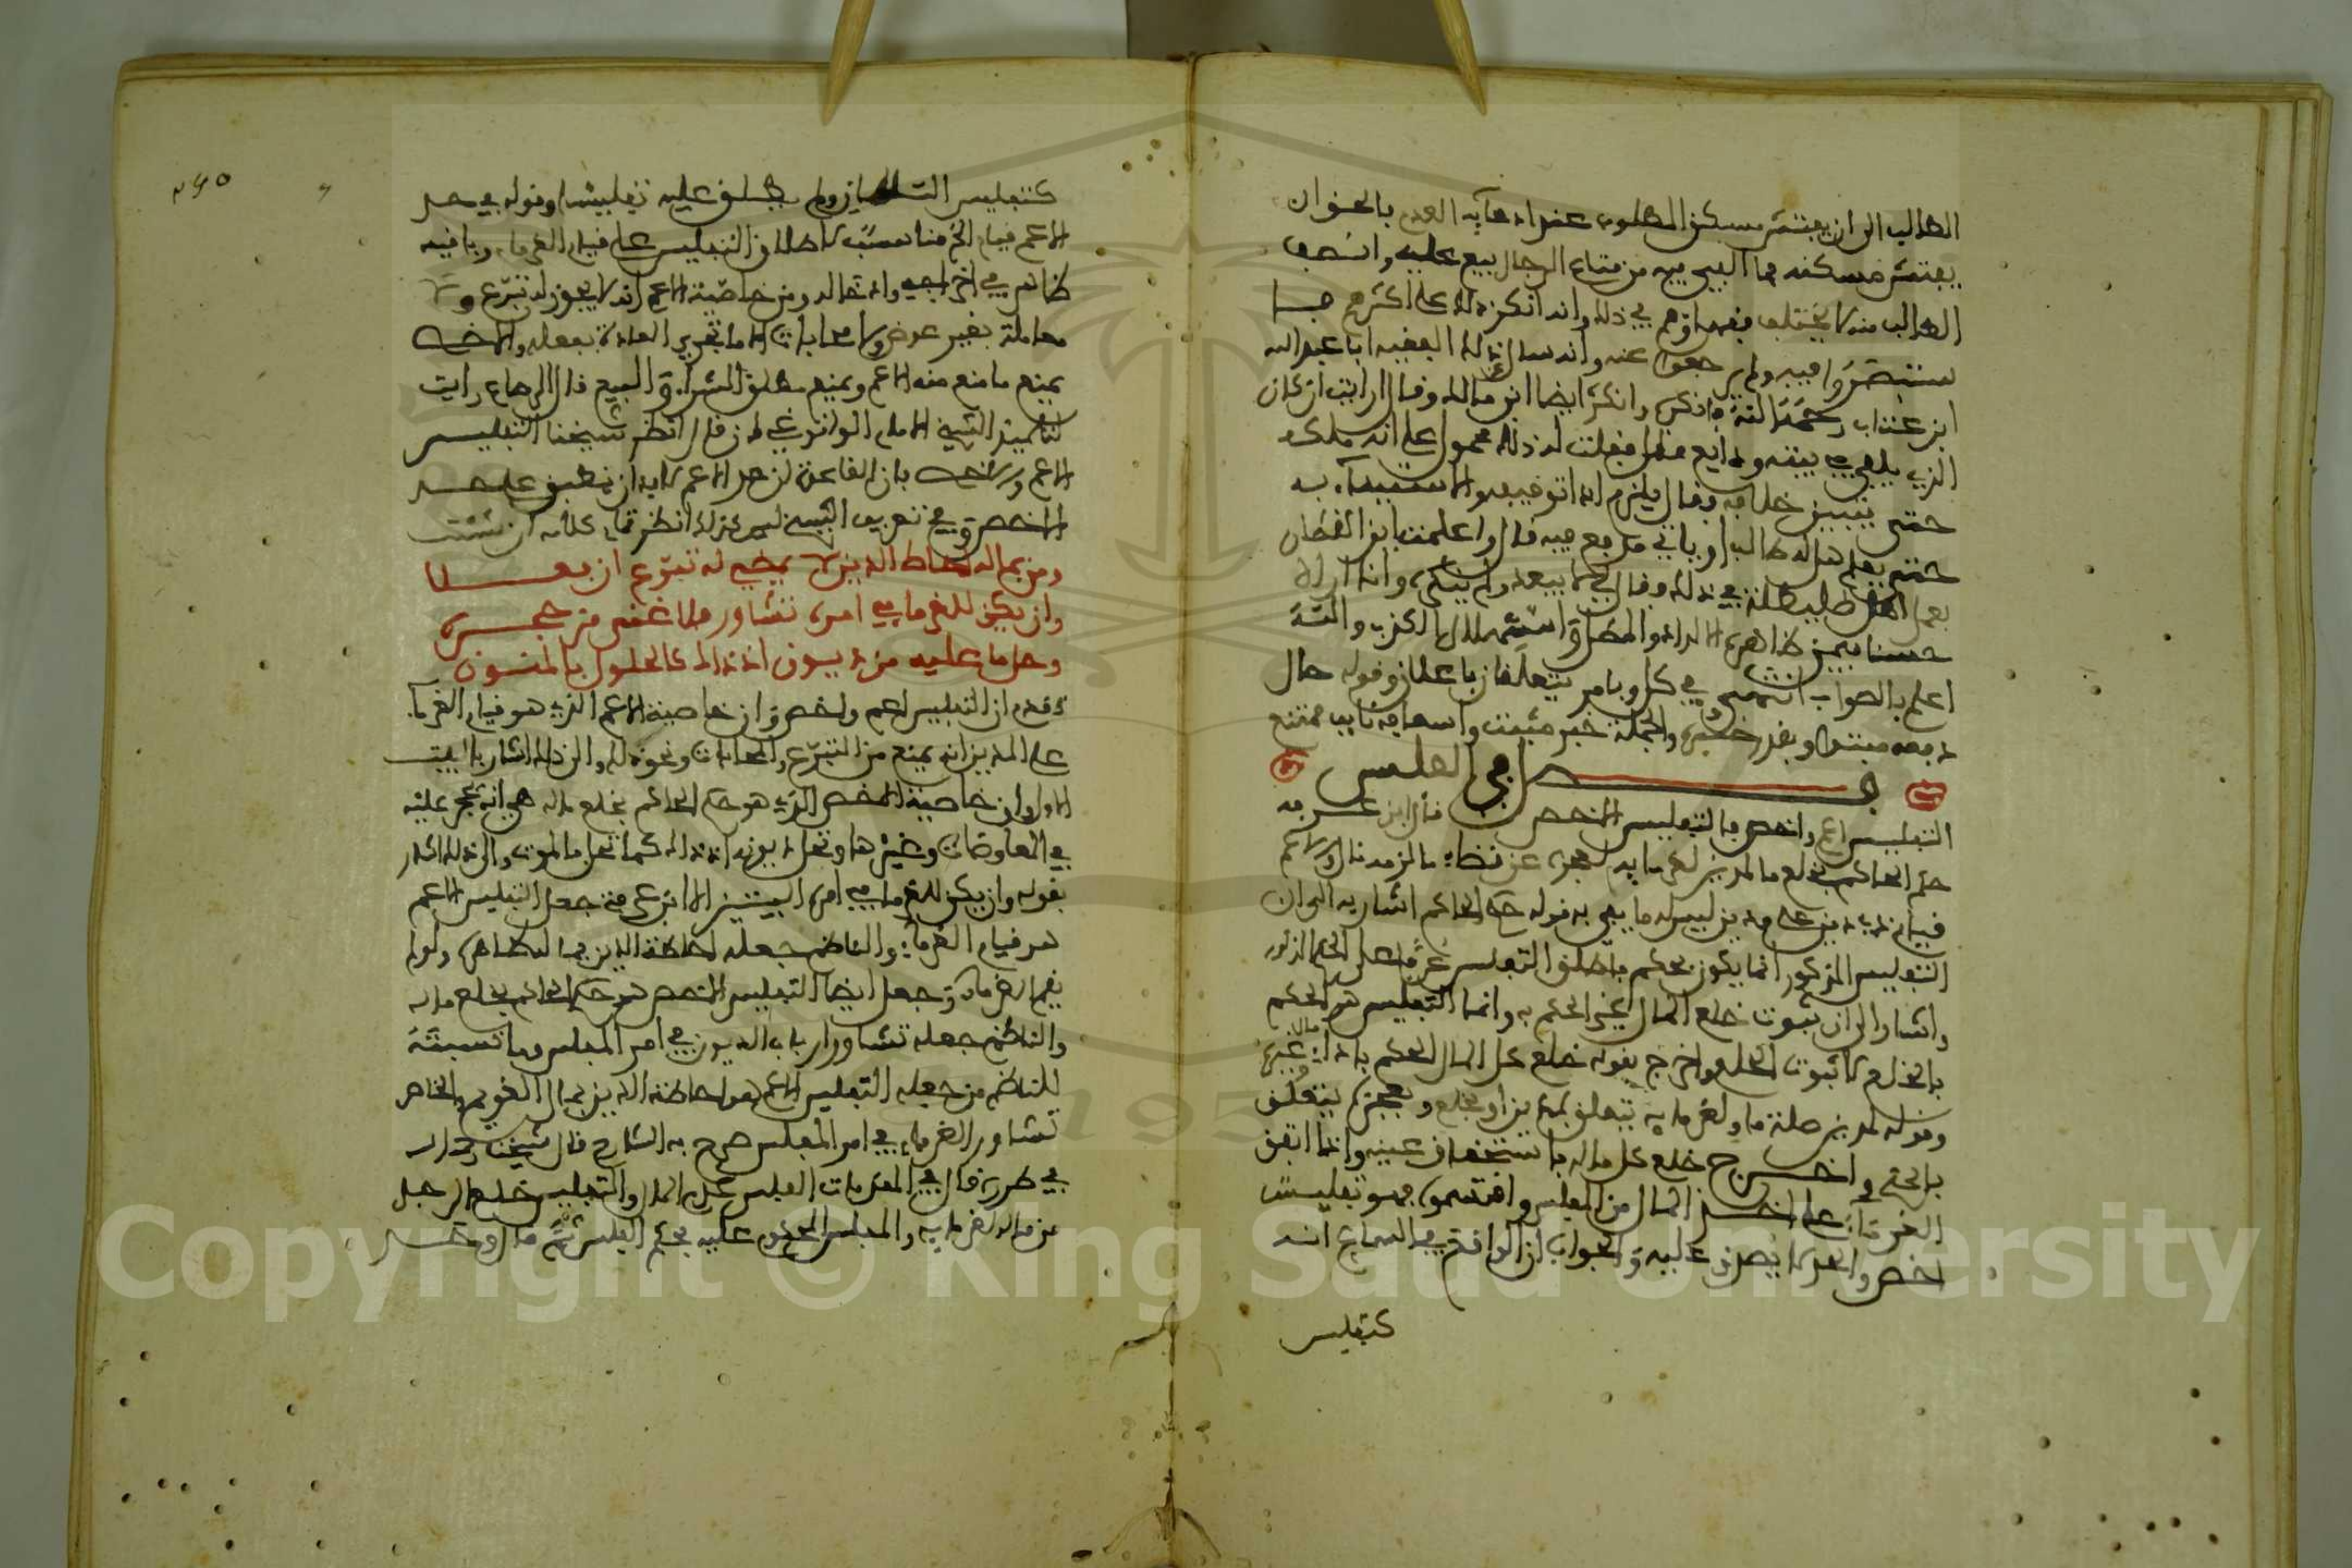 الطالب الى ان يفتش مسكن المطلوب عند ادعائه العدم بالحق وان
يفتش مسكنه فما الفي فيه من متاع الرجال بيع عليه وانصف
الطالب منه لا يختلف فقهاؤهم في ذلك وانه انكر ذلك على اكثرهم
فيه ولم يرجعوا عنه وانه سال عن ذلك الفقيه ابا عبد الله
ابن عتاب رحمه الله فانكره وانكره ايضا ابن مالك وقال ارايت ان كان
الذي يلفي في بيته ودايع فقلت له ذلك محمول على انه ملكه
حتى يتبين خلافه وقال يلزم اذا توقيفه والاستيناء به
حتى يعلم هل له طالب او ياتي مدفع فيه قال واعلمت ابن القطان
بعمل اهل طليطلة في ذلك وقال لي ما يبعد ولم ينكره وانا اراه
حسنا فيمن ظاهره الالداد والمطل واستسهال الكذب والله
اعلم بالصواب انتهى وفي كل وبامر يتعلقان باعلان وقوله حال
دفعه مبتدا وبعد خبره والجملة خبر مثبت واسعافه نايب ممتنع
فصل في الفلس
التفليس اعم واخص فالتفليس الاخص قال ابن عرفة
حكم الحاكم بخلع ما لمدين لغرمايه لعجزه عن قضاء ما لزمه قال والاعم
قيام ذي دين على مدين ليس له ما يفي به قوله حكم الحاكم اشار به الى ان
التفليس المذكور انما يكون بحكم فاطلق التفليس عرفا على الحكم المذكور
واشار الى ان ثبوت خلع المال غير الحكم به وانما التفليس هو الحكم
بالخلع لا ثبوت الخلع واخرج بقوله خلع كل المال الحكم باداء مال غيره
وقوله لمدين صلة ما ولغرمايه يتعلق بمدين او بخلع ولعجزه يتعلق
بالحكم واخرج خلع كل ماله باستحقاق عينه وانما اتفق
الغرماء على اخذ المال من المفلس واقتسموه فهو تفليس
اخص والحد لا يصدق عليه والجواب ان الواقع في السماع انه
كتفليس
٢٤٥
كتفليس السلطان ولم يطلق عليه تفليسا وقوله في حد
الاعم قيام الخ مناسب لاطلاق التفليس على قيام الغرماء وباقيه
ظاهر في اخراجه وادخاله ومن خاصية الاعم انه لا يجوز له تبرع ولا
معاملة بغير عوض ولا محاباة الا ما تجري العادة بفعله والاخص
يمنع ما منع منه الاعم ويمنع مطلق الشراء والبيع قال الرصاع رايت
لتلميذ الشيخ الامام الوانوغي ان قال انظر شيخنا التفليس
الاعم والاخص بان القاعدة ان حد الاعم لا بد ان ينطبق على حد
الاخص وفي تعريف الشيخ ليس كذلك انظر تمام كلامه ان شئت
ومن بماله احاط الدين لا يمضي له تبرع ان فعلا
وان يكن للغرما في امره تشاور فلا غنى من حجره
وحل ما عليه من ديون اذ ذاك كالحلول بالمنون
تقدم ان التفليس اعم واخص وان خاصية الاعم الذي هو قيام الغرماء
على المدين انه يمنع من التبرع والمحابات ونحو ذلك والى ذلك اشار بالبيت
الاول وان خاصية الاخص الذي هو حكم الحاكم بخلع ماله هي انه يحجر عليه
في المعاوضات وغيرها وتحل ديونه اذ ذاك كما تحل بالموت والى ذلك اشار
بقوله وان يكن للغرما في امره البيتين الا انه جعل التفليس الاعم
هو قيام الغرماء والناظم جعله احاطة الدين بماله لظاهره ولو لم
يقم الغرماء وجعل ايضا التفليس الاخص هو حكم الحاكم بخلع ماله
والناظم جعله تشاور ارباب الديون في امر المفلس وما نسبته
للناظم من جعله التفليس الاعم هو احاطة الدين بمال الغريم والخاص
تشاور الغرماء في امر المفلس صرح به الشارح قال شيخنا رحمه الله
في طرره قال في المقدمات الفلس عدم المال والتفليس خلع الرجل
من ماله لغرمايه والمفلس المحكوم عليه بحكم الفلس ثم قال وحد